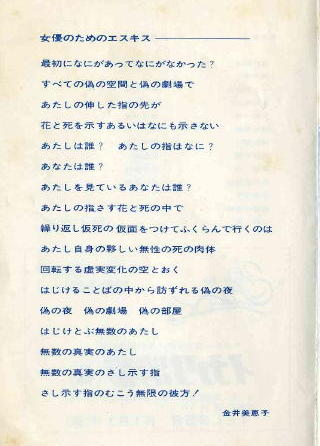 女優のためのエスキス――――――
最初になにがあってなにがなかった?
すべての偽の空間と偽の劇場で
あたしの伸した指の先が
花と死を示すあるいはなにも示さない
あたしは誰? あたしの指はなに?
あなたは誰?
あたしを見ているあなたは誰?
あたしの指さす花と死の中で
繰り返し仮死の仮面をつけてふくらんで行くのは
あたし自身の夥しい無性の死の肉体
回転する虚実変化の空とおく
はじけることばの中から訪ずれる偽の夜
偽の夜 偽の劇場 偽の部屋
はじけとぶ無数のあたし
無数の真実のあたし
無数の真実のさし示す指
さし示す指のむこう無限の彼方!
金井美恵子